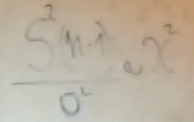 S²(n-1)
/σ² ~ χ²